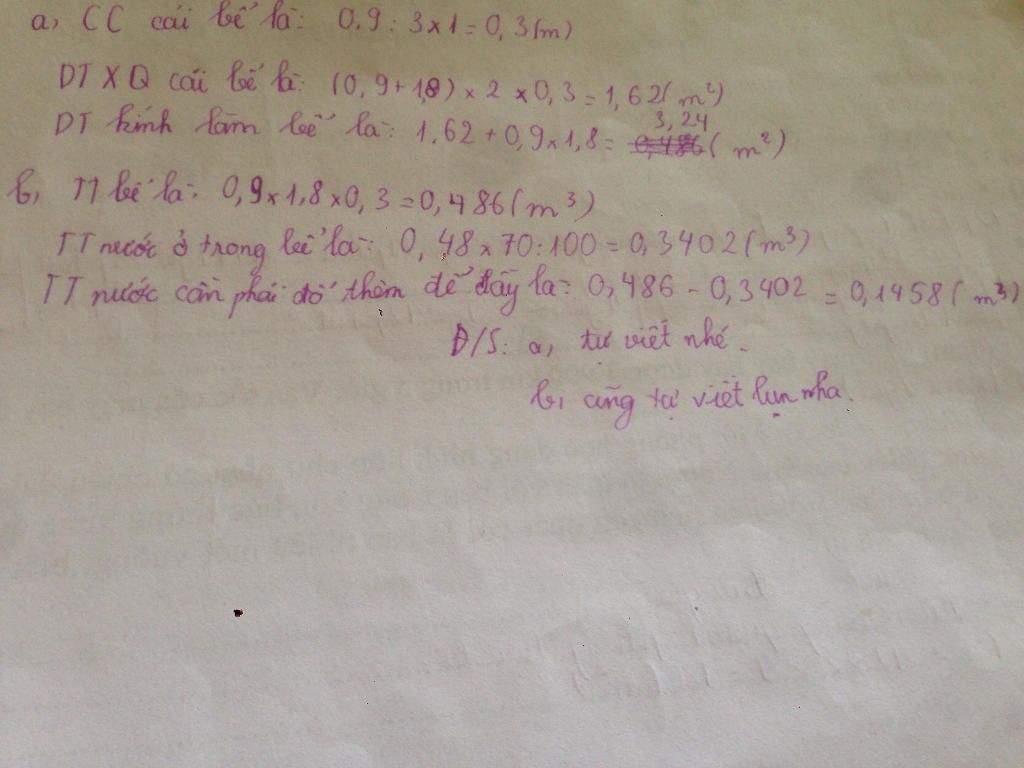 a, CC cái bể là: 0,9 : 3 x 1 = 0,3 (m)
DT XQ cái bể là: (0,9 + 1,8) x 2 x 0,3 = 1,62 (m²)
DT kính làm bể là: 1,62 + 0,9 x 1,8 = 3,24 (m²)
b, TT bể là: 0,9 x 1,8 x 0,3 = 0,486 (m³)
TT nước ở trong bể là: 0,48 x 70 : 100 = 0,3402 (m³)
TT nước cần phải đổ thêm để đầy là: 0,486 - 0,3402 = 0,1458 (m³)
Đ/S: a, tự viết nhé.
b, cũng tự viết lun nha.